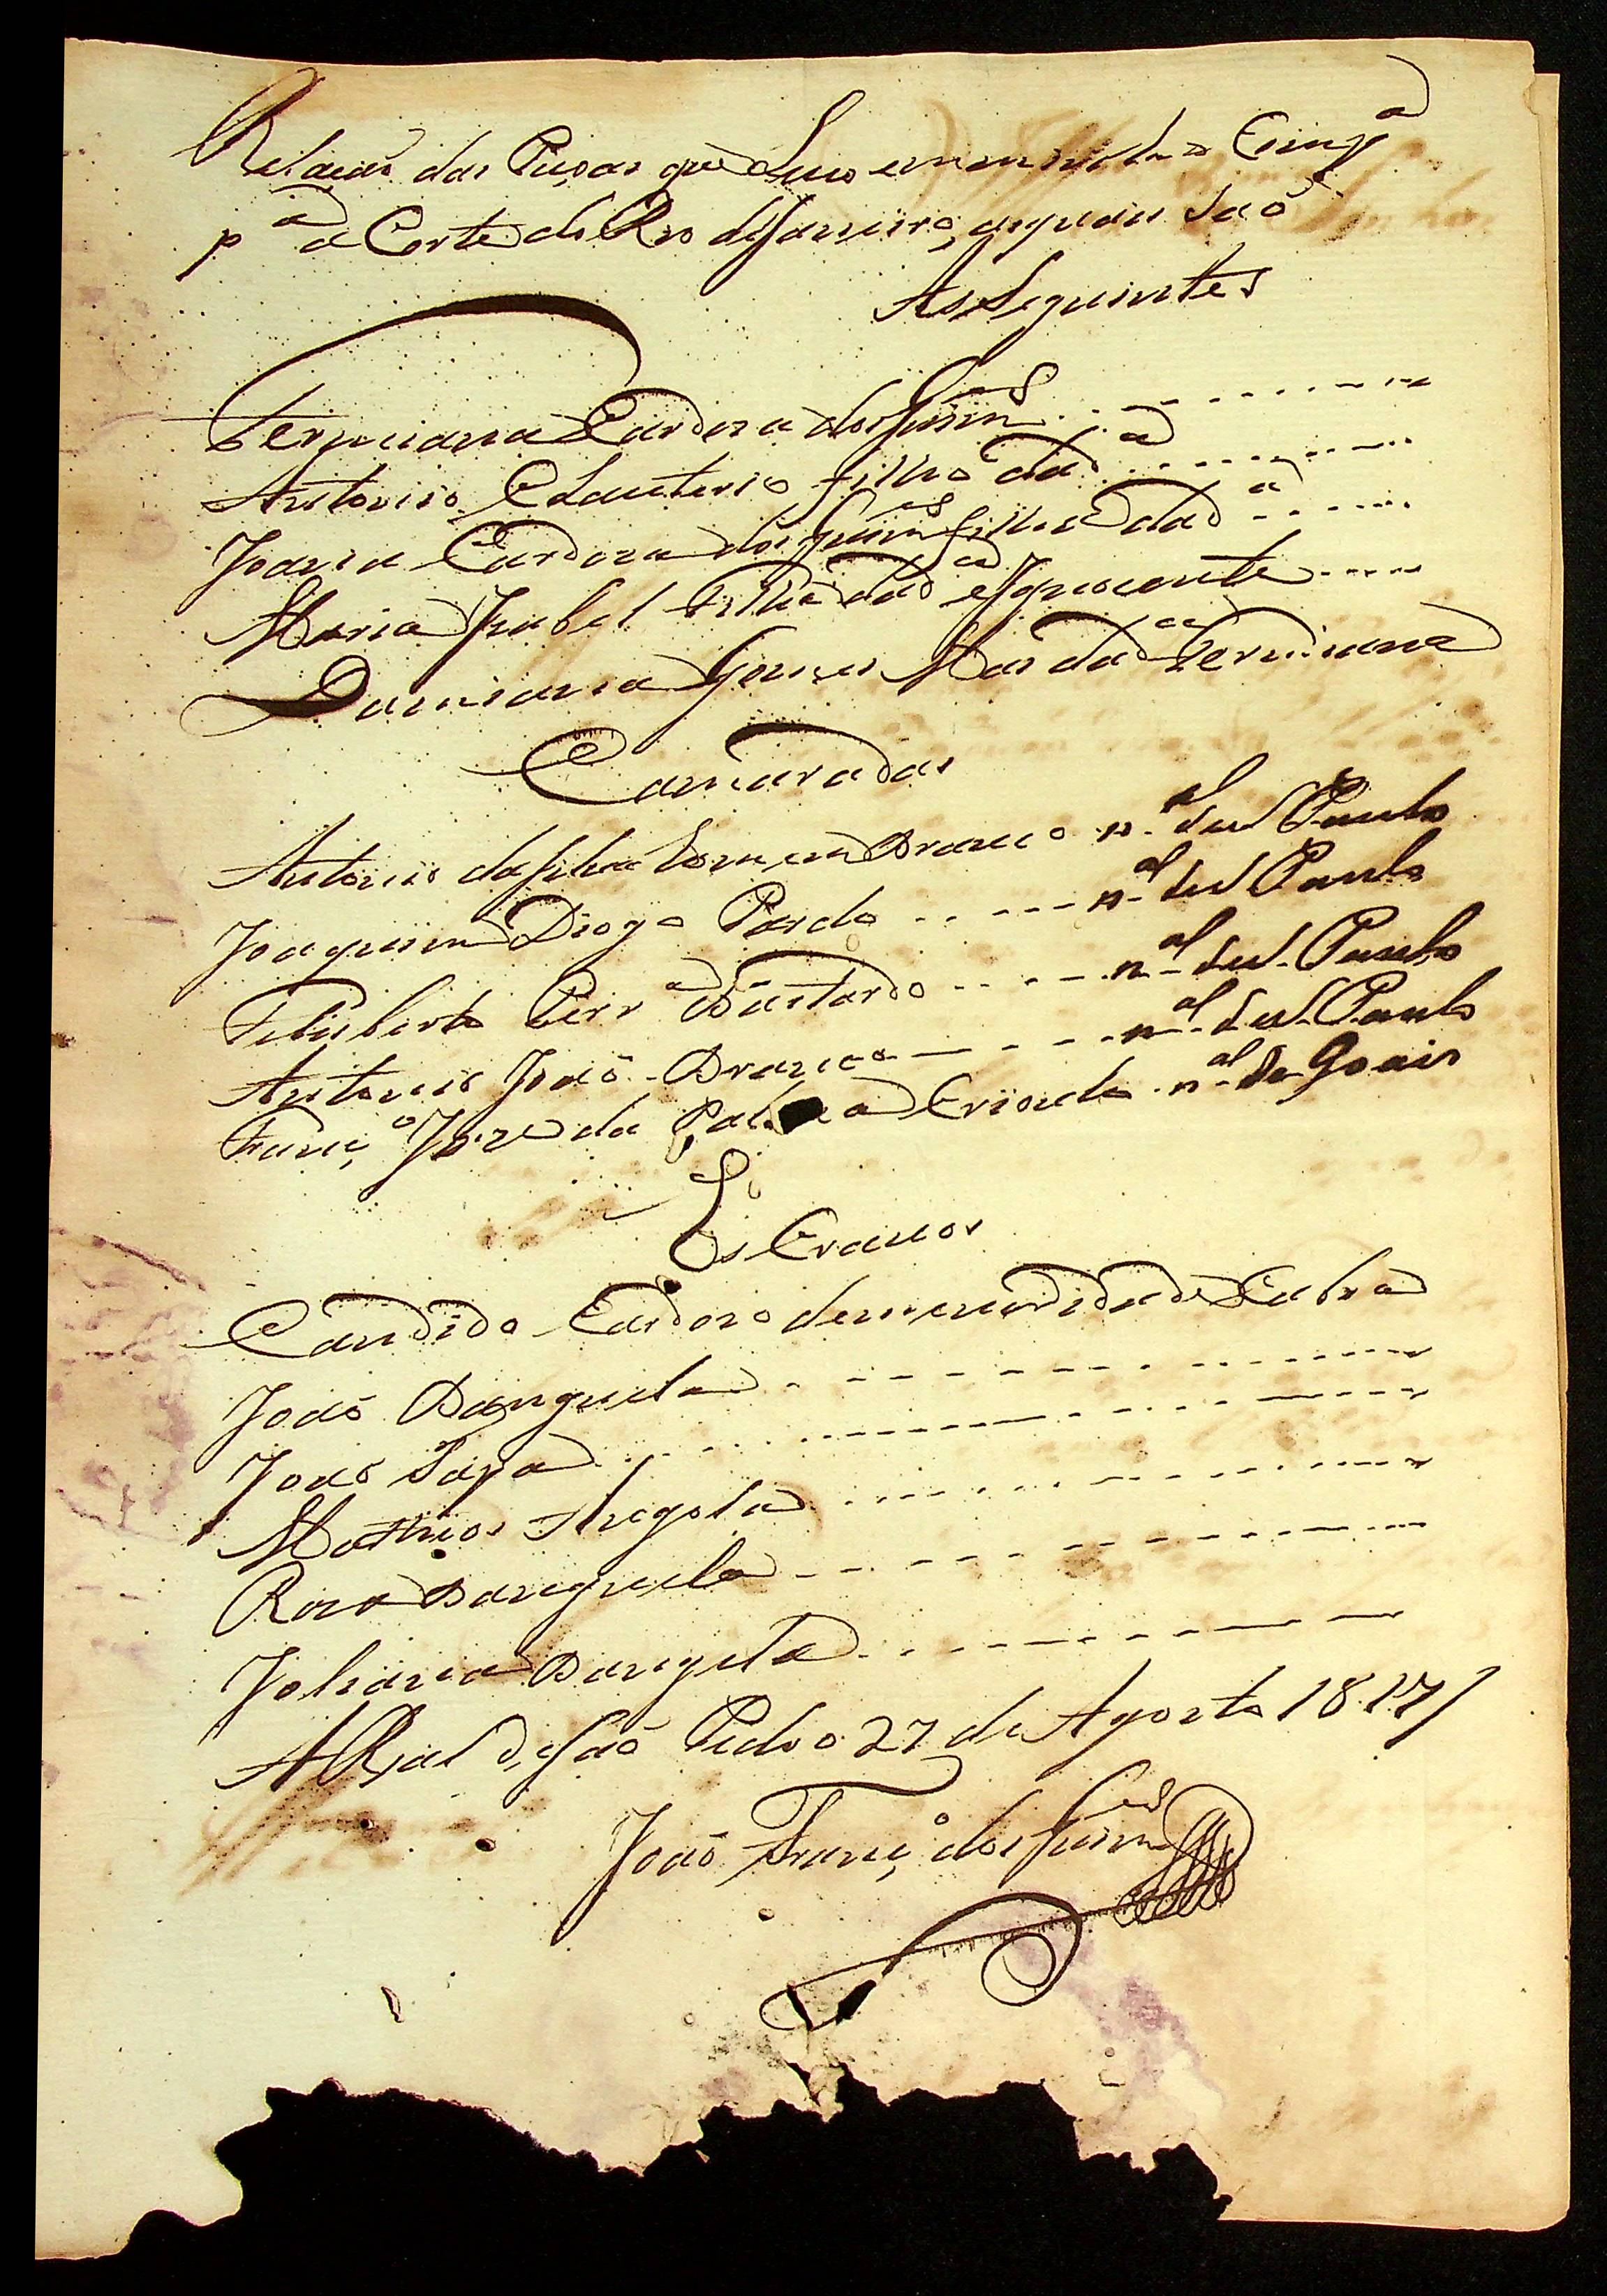 Relacaõ das Pesoas que Levo em minha Comp.ª
p.ª a Corte do Rio de Janeiro, asquais Saõ
As Seguintes
Fermiana Cardoza dos Guim.es
Antonio Elauterio filho da d.ª
Joana Cardoza dos Guim.es filha da d.ª
Maria Izabel Filha da d.ª eJgnocente
Damiana Gomes Mai da d.ª Fermiana
Camaradas
Antonio da Silva homem Branco n.al de S. Paulo
Joaquim Diogo Pardo n.al de S. Paulo
Feliisberto Perr.ª Bastardo n.al de S. Paulo
Antonio Joaõ Branco n.al de S. Paulo
Franc.º Joze da Crioulo n.al de Goais
Escravos
Candido Cardozo de menoridade Cabra
Joaõ Banguela
Joaõ Papa
Matheos Angola
Roza Banguela
Joliana Bangela
ARaial de Saõ Pedro 27 de Agosto 1817
Joaõ Franc.º dos Guim.es